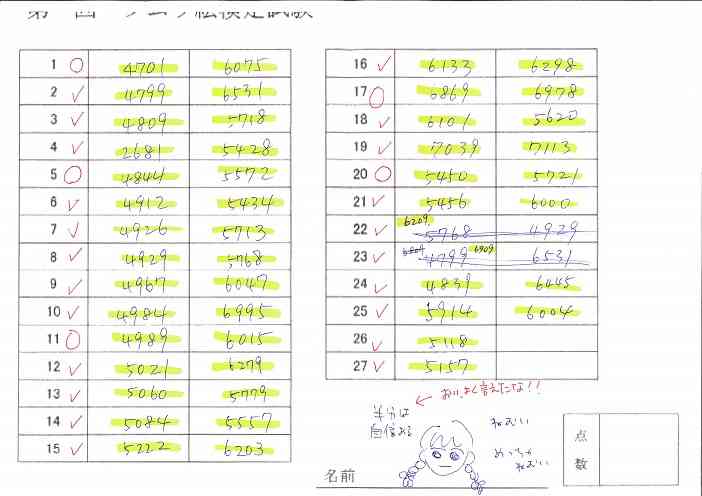 1 4701 6075
2 4799 6531
3 4809 5718
4 2681 5428
5 4844 5572
6 4912 5434
7 4926 5713
8 4929 5768
9 4967 6047
10 4984 6995
11 4989 6015
12 5021 6279
13 5060 5779
14 5084 5557
15 5222 6203
16 6133 6298
17 6869 6978
18 6101 5620
19 7039 7113
20 5450 5721
21 5456 6000
6209
22 5768 4929
23 4799 6909 6531
24 4839 6045
25 5914 6004
26 5118
27 5157
← おい、よく言えたな!!
半分は
自信ある
ねむい
めっちゃ
ねむい
点
数
名前